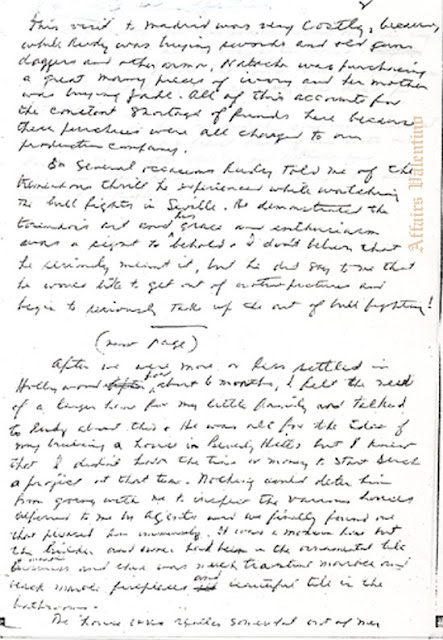 2
This visit to Madrid was very costly, because
while Rudy was buying swords and old guns
daggers and other armor, Natacha was purchasing
a great many pieces of ivory and her mother
was buying jade. All of this accounts for
the constant shortage of funds here because
these purchases were all charged to our
production company.
On several occasions Rudy told me of the
tremendous thrill he experienced while watching
the bull fights in Seville. He demonstrated the
toreador's art and his grace and enthusiasm
was a sight to behold. I don't believe that
he seriously meant it, but he did say to me that
he would like to get out of motion pictures and
begin to seriously take up the art of bull fighting!
(new page)
After we were more or less settled in
Hollywood for about 6 months, I felt the need
of a larger home for my little family and talked
to Rudy about this. He was all for the idea of
my building a house in Beverly Hills but I knew
that I didn't have the time or money to start such
a project at that time. Nothing would deter him
from going with me to inspect the various houses
referred to me by agents and we finally found one
that pleased him immensely. It was a modern house but
the builder and owner had been in the ornamental tile
business and there was much travertine marble and
black marble fireplaces and beautiful tile in the
bathrooms.
The house was quite somewhat out of my
Affairs Valentino